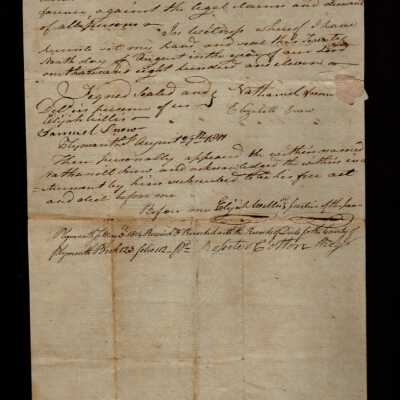 forever against the legal claims and demands
of all Persons
In witness whereof I have
hereunto set my hand and seal this Twenty
Ninth day of August in the year of our Lord
one thousand eight hundred and eleven
Signed Sealed and
Nathaniel Snow
Deld in presence of us
Elizabeth Snow
Elijah Willis
Samuel Snow
Plymouth ss August 29th 1811
Then personally appeared the within named
Nathaniel Snow and acknowledged the within in
strument by him subscribed to be his free act
and deed before me
Before me Elijah Willis Justice of the Peace
Plymouth ss 1814 Received & Recorded with the Records of Deeds for the County of
Plymouth Book 123 folio 112
Pr Rossiter Cotton Regr